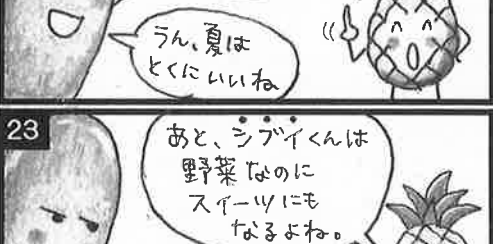 うん、夏は
とくにいいね
23
あと、シブイくんは
野菜なのに
スイーツにも
なるよね。